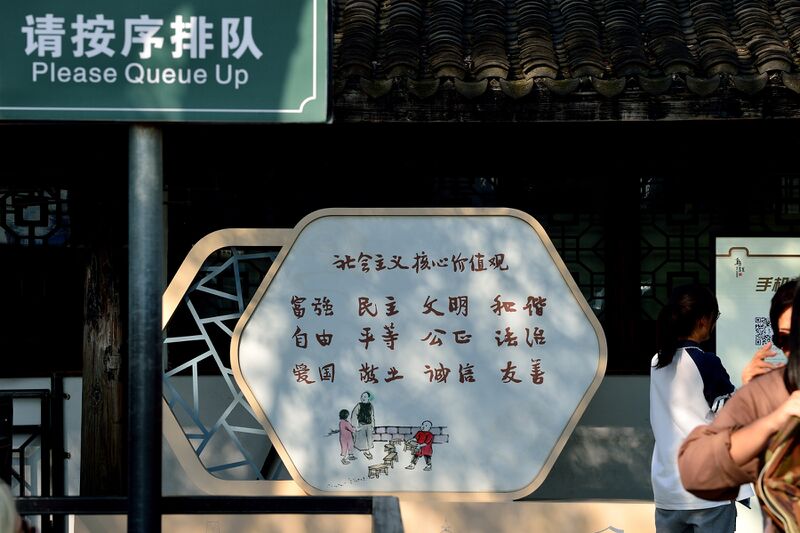 请按序排队
Please Queue Up
社会主义核心价值观
富强 民主 文明 和谐
自由 平等 公正 法治
爱国 敬业 诚信 友善
手机